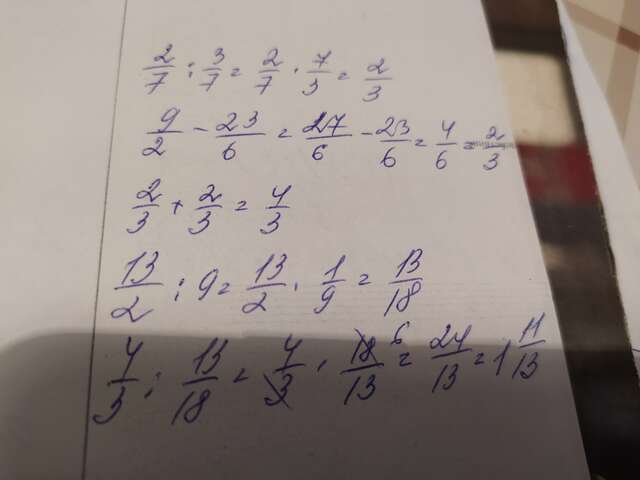 2/7 : 3/7 = 2/7 · 7/3 = 2/3
9/2 - 23/6 = 27/6 - 23/6 = 4/6 = 2/3
2/3 + 2/3 = 4/3
13/2 : 9 = 13/2 · 1/9 = 13/18
4/3 : 13/18 = 4/3 · 18/13 6 = 24/13 = 1 11/13